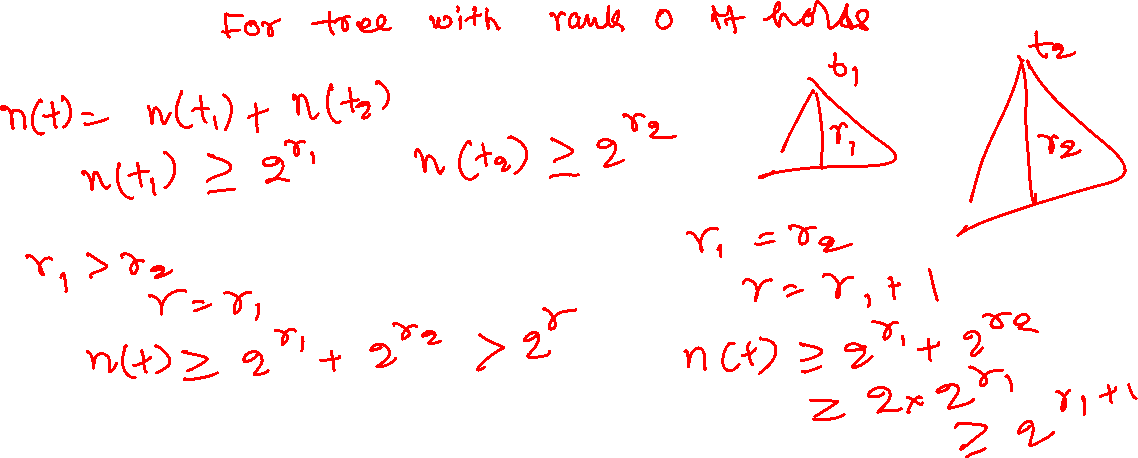 For tree with rank 0 it holds
n(t) = n(t₁) + n(t₂)
n(t₁) ≥ 2^r₁   n(t₂) ≥ 2^r₂
t₁
r₁
t₂
r₂
r₁ > r₂
r = r₁
n(t) ≥ 2^r₁ + 2^r₂ > 2^r
r₁ = r₂
r = r₁ + 1
n(t) ≥ 2^r₁ + 2^r₂
≥ 2 × 2^r₁
≥ 2^r₁+1